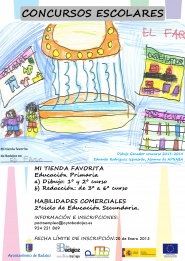 CONCURSOS ESCOLARES
EL FAR
Mi tienda favorita
de Badajoz es
Dibujo Ganador concurso
Eduardo Rodríguez, Alumno de APNABA
MI TIENDA FAVORITA
Educación Primaria
a) Dibujo: 1º y 2º curso
b) Redacción: de 3º a 6º curso
HABILIDADES COMERCIALES
2ºciclo de Educación Secundaria.
INFORMACIÓN E INSCRIPCIONES:
924 221 089
FECHA LÍMITE DE INSCRIPCIÓN: 20 de Enero 2015
Ayuntamiento de Badajoz